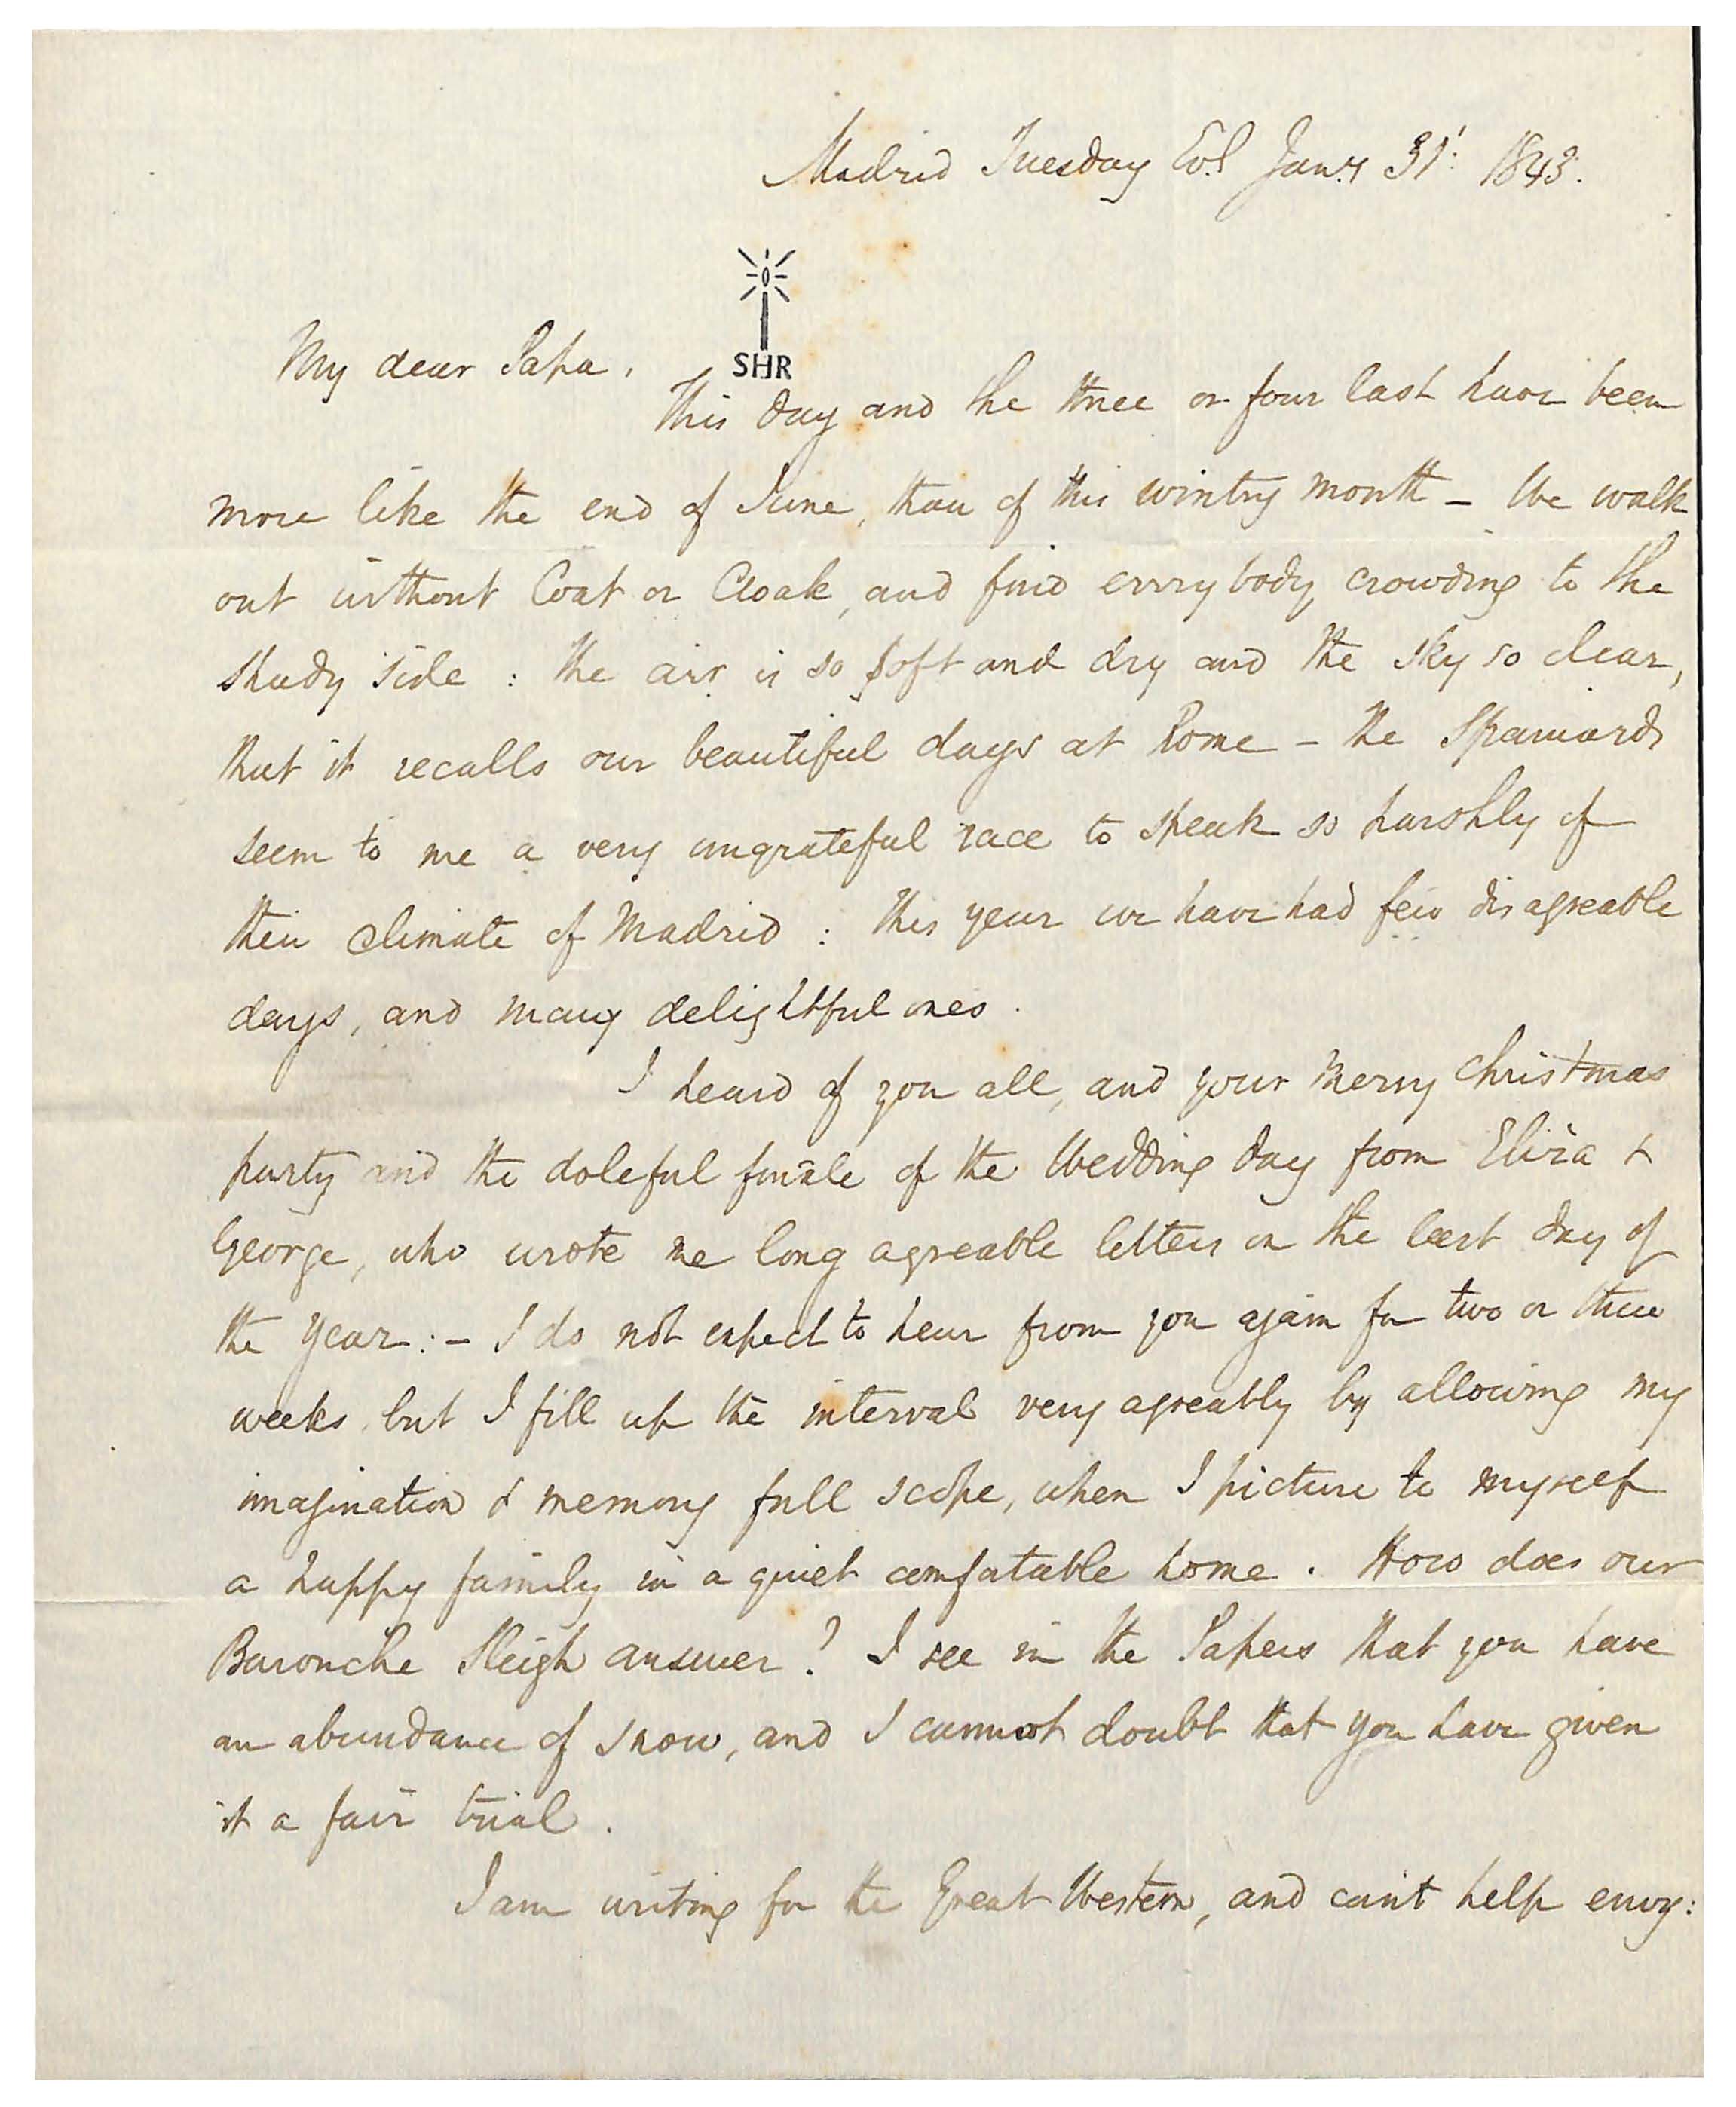 Madrid Tuesday Ev.g Jan.y 31. 1843.
SHR
My dear Papa,
This day and the three or four last have been
more like the end of June, than of this wintry month – We walk
out without Coat or Cloak, and find everybody crowding to the
shady side : the air is so soft and dry and the sky so clear,
that it recalls our beautiful days at Rome – the Spaniards
seem to me a very ungrateful race to speak so harshly of
their climate of Madrid : this year we have had few disagreable
days, and many delightful ones.
I heard of you all, and your merry Christmas
party and the doleful finale of the Wedding day from Eliza &
George, who wrote me long agreable letters on the last day of
the Year : – I do not expect to hear from you again for two or three
weeks, but I fill up the interval very agreably by allowing my
imagination & memory full scope, when I picture to myself
a happy family in a quiet comfortable home . How does our
Barouche Sleigh answer ? I see in the Papers that you have
an abundance of snow, and I cannot doubt that you have given
it a fair trial .
I am writing for the Great Western, and can't help envy: